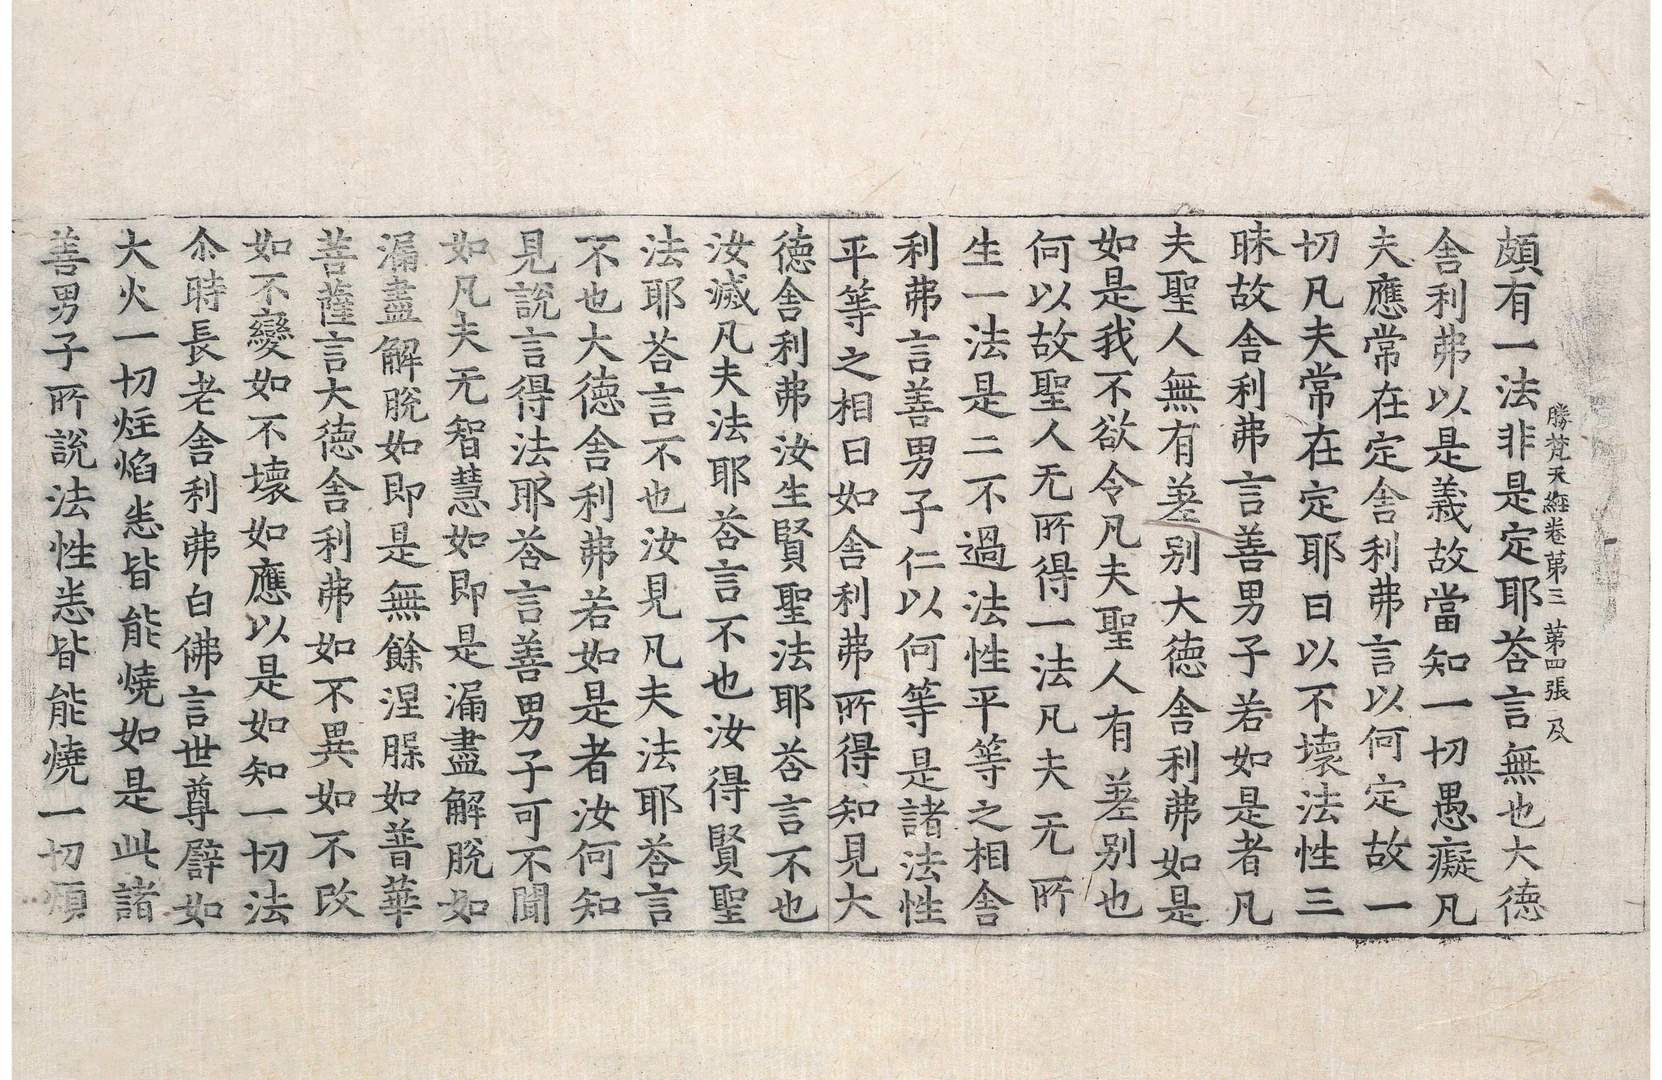 勝梵天經卷第三 第四張 及
頗有一法非是定耶荅言無也大德
舎利弗以是義故當知一切愚癡凡
夫應常在定舎利弗言以何定故一
切凡夫常在定耶曰以不壞法性三
昧故舎利弗言善男子若如是者凡
夫聖人無有差别大德舎利弗如是
如是我不欲令凡夫聖人有差别也
何以故聖人无所得一法凡夫无所
生一法是二不過法性平等之相舎
利弗言善男子仁以何等是諸法性
平等之相曰如舎利弗所得知見大
德舎利弗汝生賢聖法耶荅言不也
汝滅凡夫法耶荅言不也汝得賢聖
法耶荅言不也汝見凡夫法耶荅言
不也大德舎利弗若如是者汝何知
見說言得法耶荅言善男子可不聞
如凡夫无智慧如即是漏盡解脫如
漏盡解脫如即是無餘涅𦘺如普華
菩薩言大德舎利弗如不異如不改
如不變如不壞如應以是如知一切法
尒時長老舎利弗白佛言世尊譬如
大火一切炷焰悉皆能燒如是此諸
善男子所說法性悉皆能燒一切煩